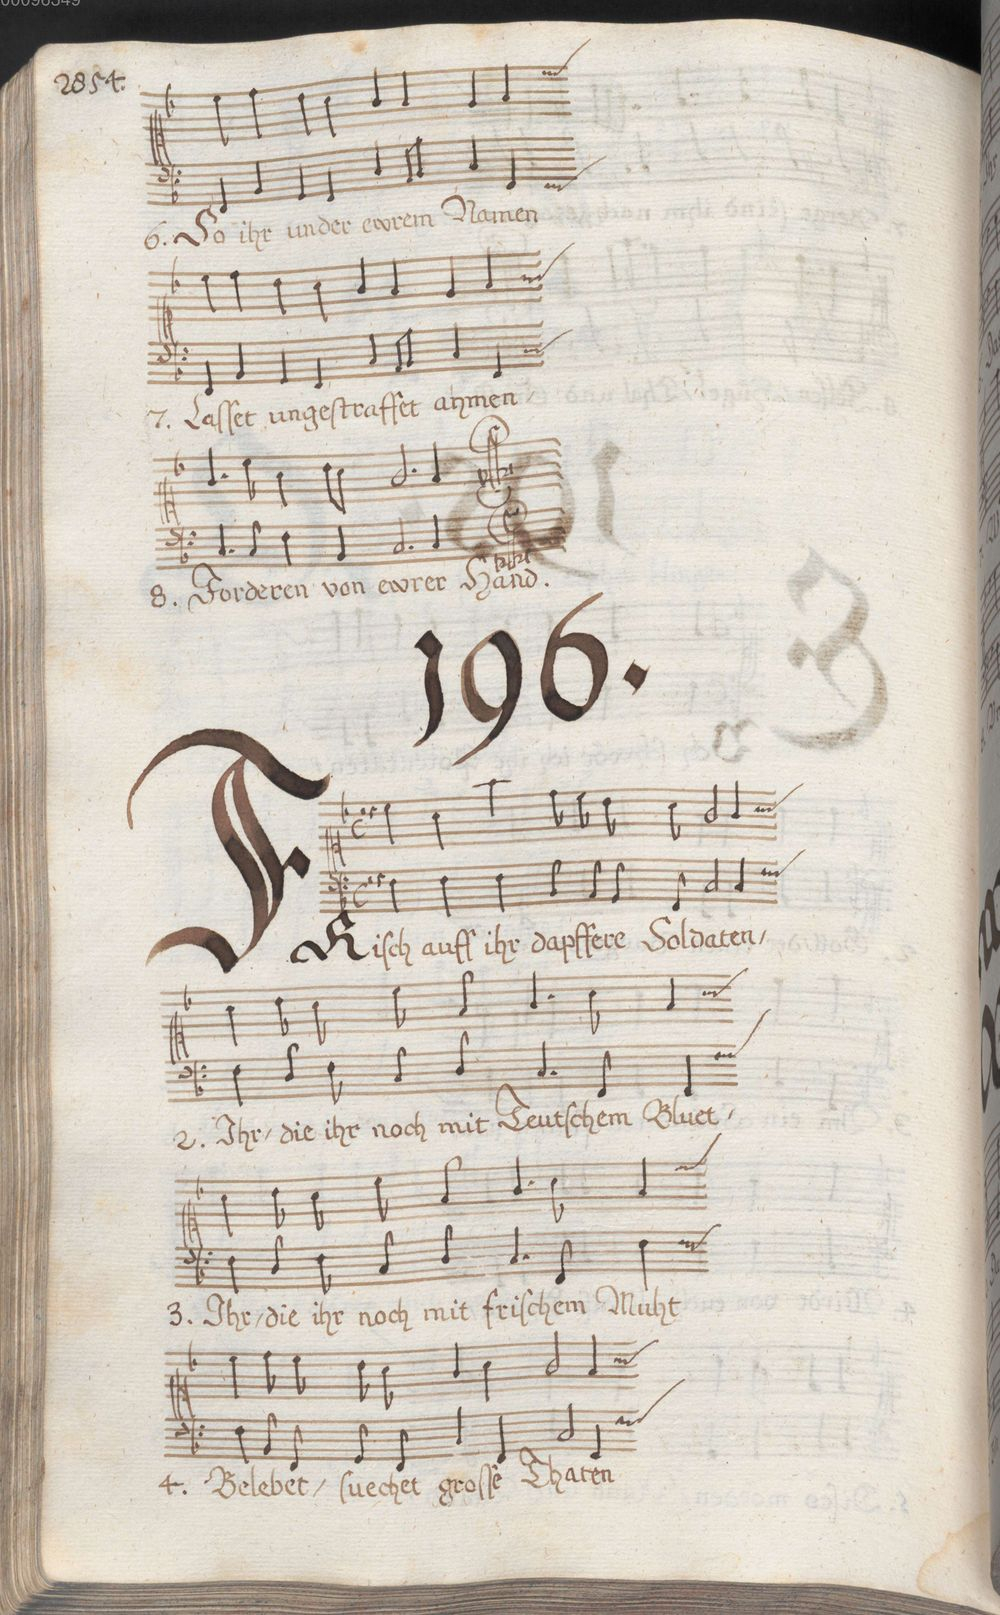 00098549
2854.
6. So ihr under ewrem Namen
7. Lasset ungestraffet ahmen
8. Forderen von ewrer Hand.
196.
FRisch auff ihr dapffere Soldaten,
2. Ihr, die ihr noch mit Teutschem Bluet,
3. Ihr, die ihr noch mit frischem Muht
4. Belebet, suechet grosse Thaten